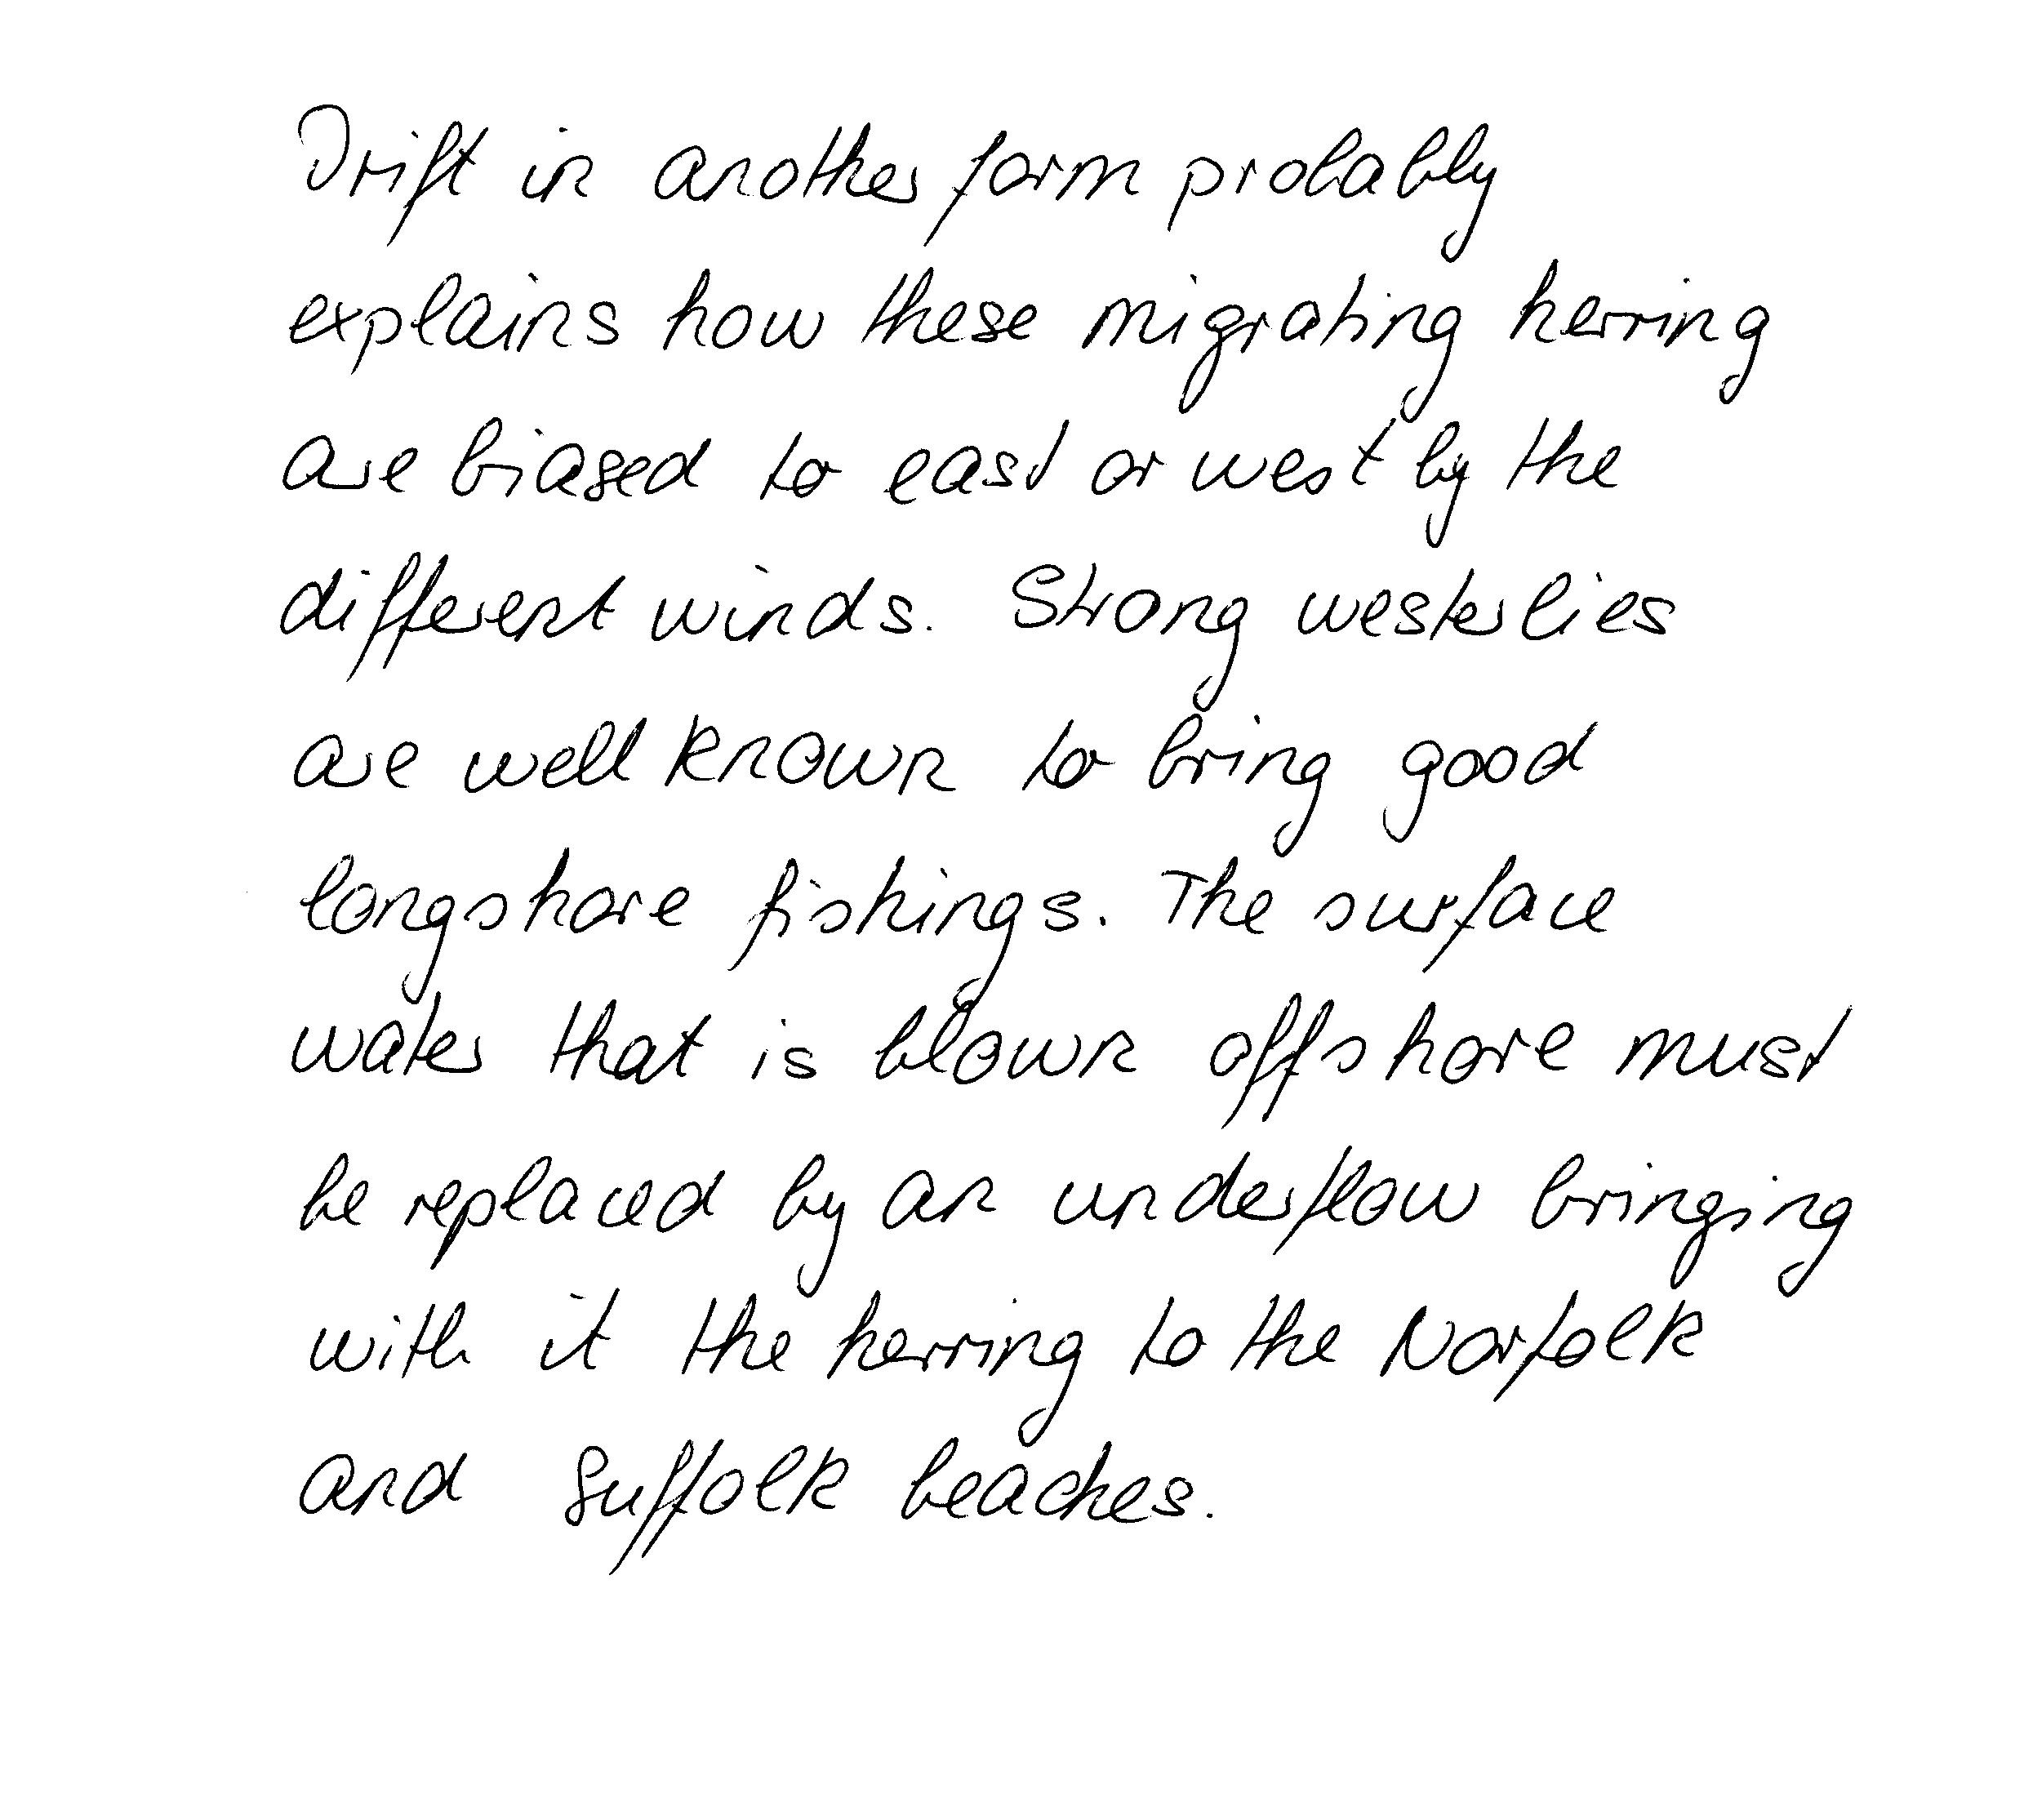 Drift in another form probably
explains how these migrating herring
are biased to east or west by the
different winds. Strong westerlies
are well known to bring good
longshore fishings. The surface
water that is blown offshore must
be replaced by an underflow bringing
with it the herring to the Norfolk
and Suffolk beaches.